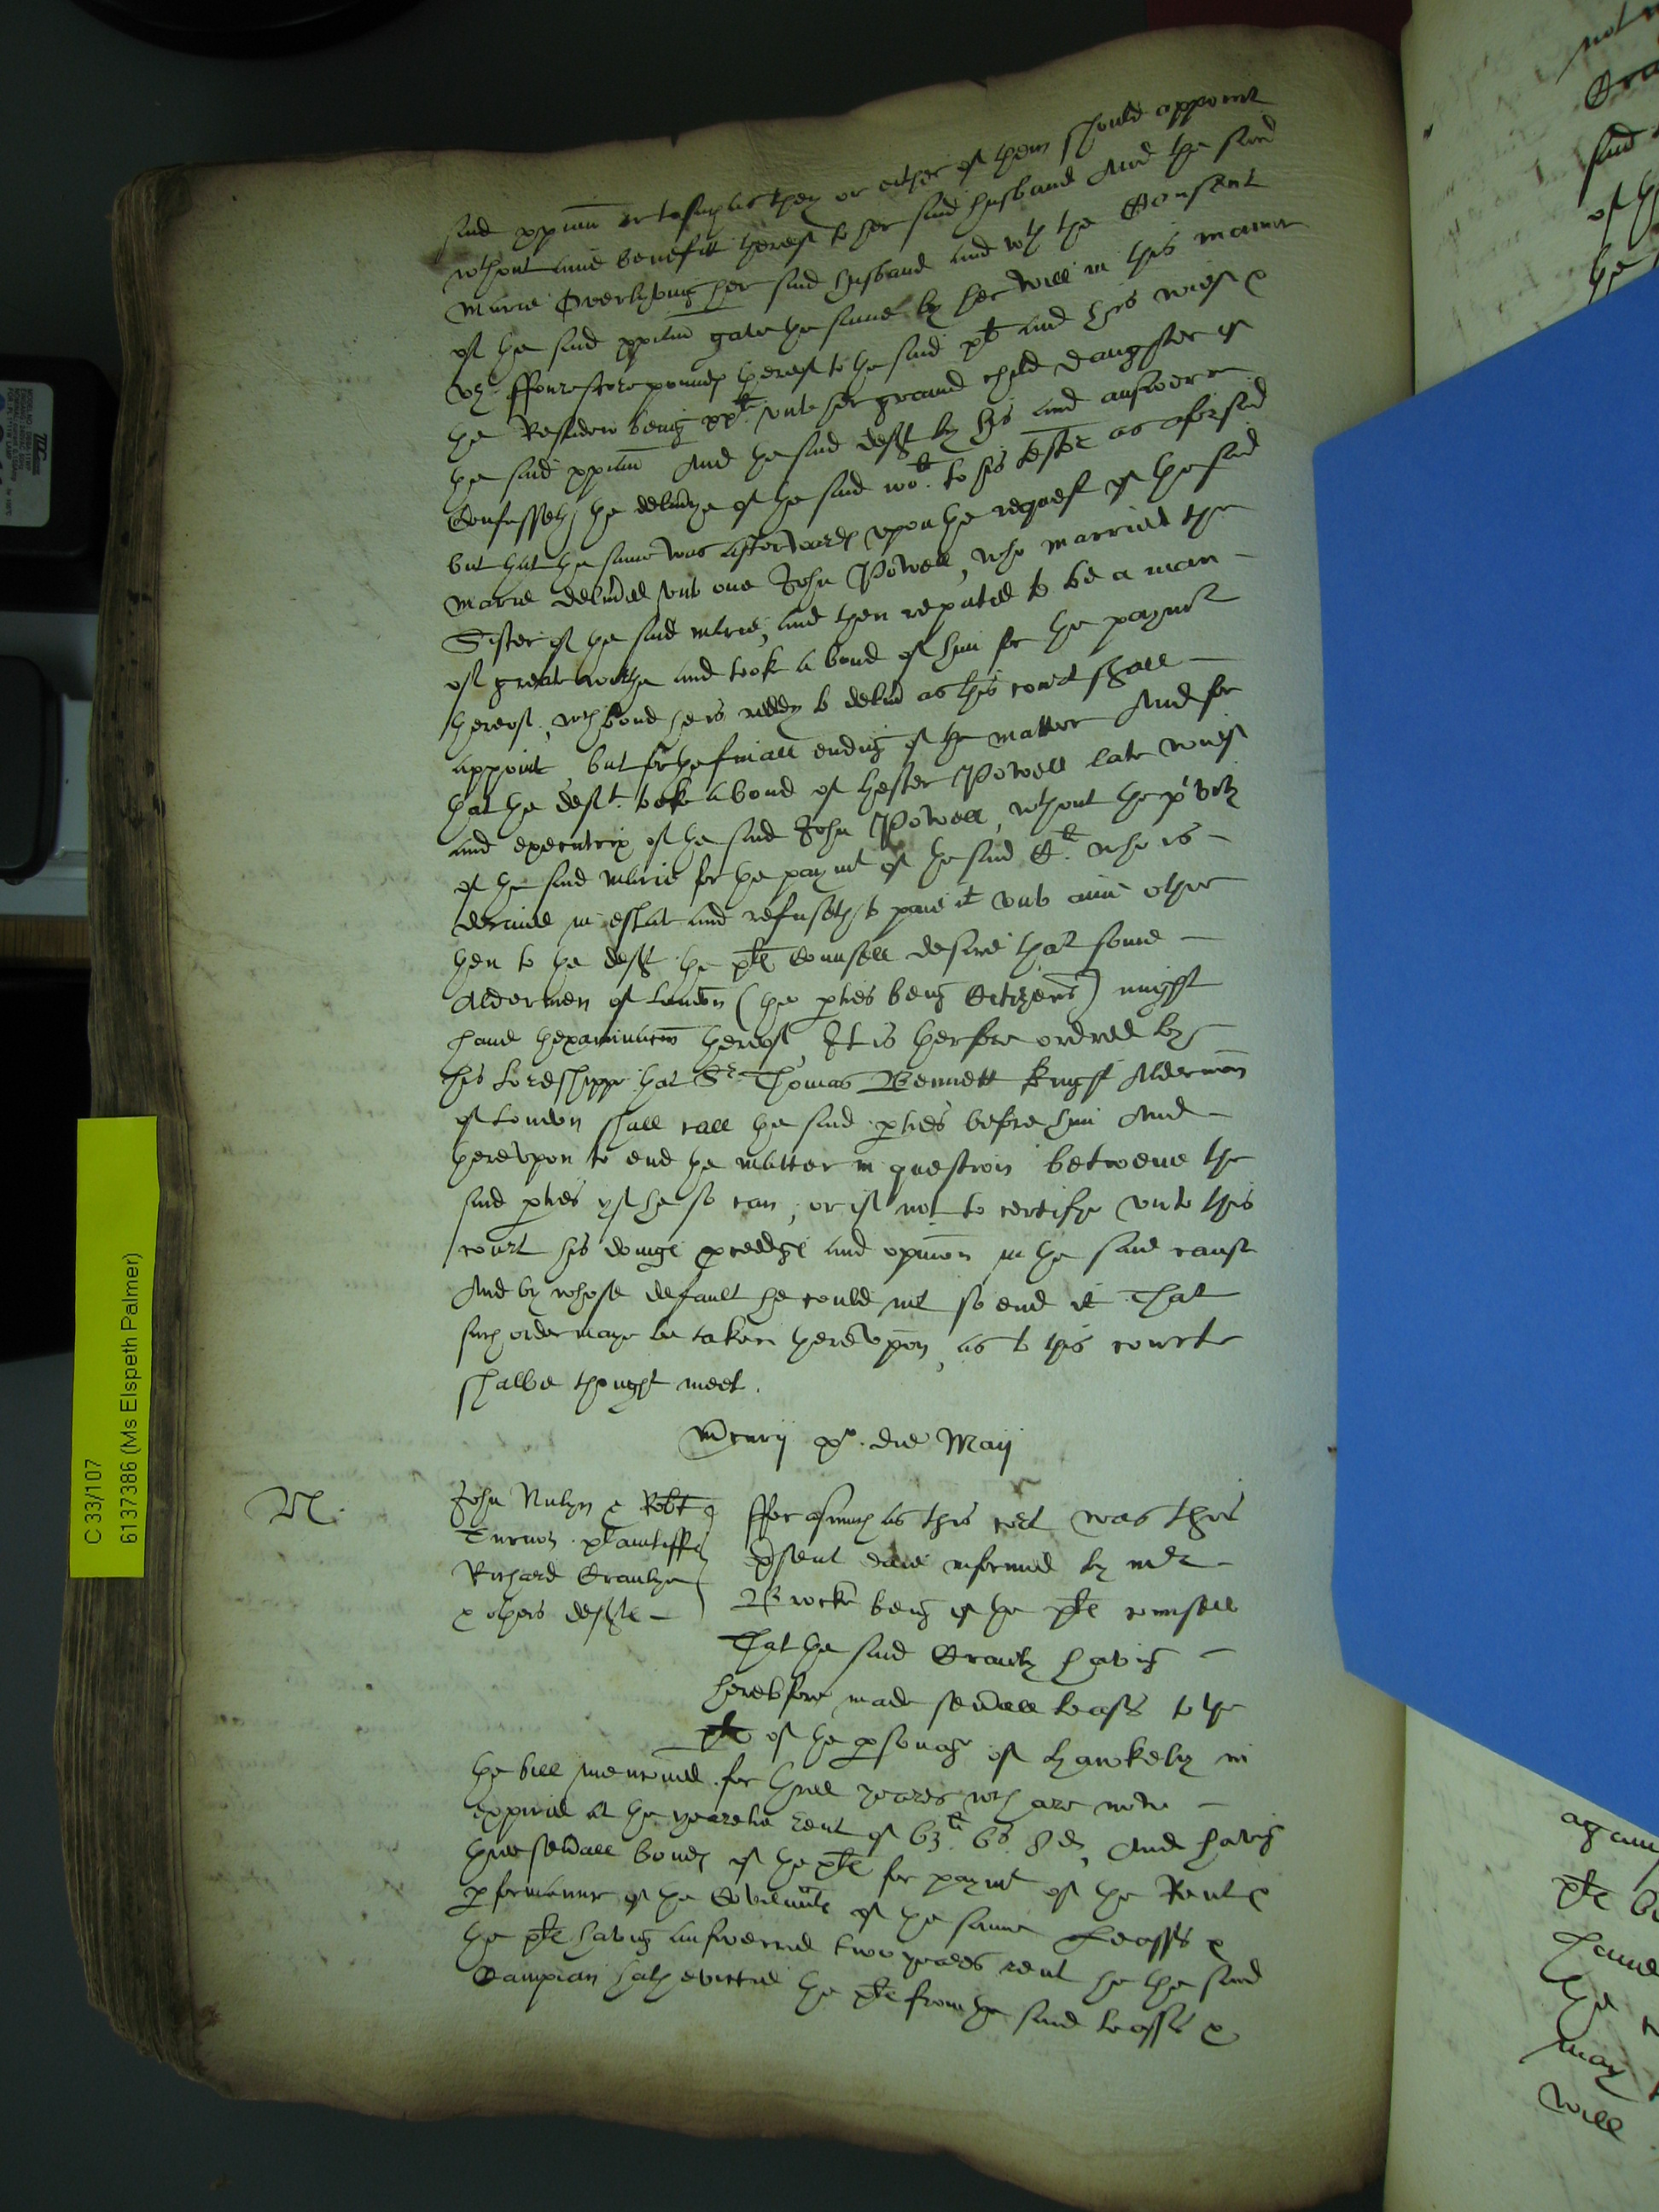 said ppiam or to such as they or either of them should appoint
wthout anie benefitt thereof to her said husband And the said
Marie Overlyving her said husband and wth the Consent
of the said ppiam gave the same by her will in this maner
vz ffourescore pounds thereof to the said plt and his wief &
the Residew being xxli unto her grand child daughter of
the said ppiam And the said deft by his answere
Confesseth the deliverye of the said to his testor as aforesaid
but that the same was afterwards upon the request of the said
Marie delivered unto one John Powell, who married the
Sister of the said Marie, and then reputed to be a man
of great worthe and took a bond of him for the paymt
thereof, wch bond he is reddy to delivr as this court shall
appoint, but for the finall ending of the matter And for
that the deft. took a bond of Hester Powell late wief
and executrix of the said John Powell, wthout the privity
of the said Marie for the paymt of the said Cli who is
decaied in estate and refuseth to paie it unto anie other
then to the deft the pltes Counsell desired that some
Aldermen of London (the pties being Citizens) might
have thexaminacon thereof, It is therfore ordred by
his Lordshippe that Sr. Thomas Bennett knight Alderman
of London shall call the said pties before him And
thereupon to end the matter in question betweene the
said pties yf he so can, or if not to certifye unto this
court his doings proceedgs and opinion in the said cause
And by whose default he could not so end it That
such order maye be taken thereupon, as to this courte
shalbe thought meet.
Mercurij po. die Maij
N.
John & Robt
Turnor plaintiffs
Richard Crauly
& others defts
fforasmuch as this cort was this
psent daie informed by mr
Brocke being of the pltes counsell
That the said Crauly having
heretofore made severall leases to the
plts of the psonage of Hawkely in
the bill mencioned for three yeares wch are now
expired at the yearelie rent of 63li 6s 8d, And having
three severall bonds of the pltes for paymt of the Rent &
pformance of the Covenants of the same Leasses &
the pltes having answered two yeares rent he the said
Campian hath evicted the pltes from the said leasses &
C 33/107
6137386 (Ms Elspeth Palmer)
not
said
of
he
again
plte
have
the
may
will